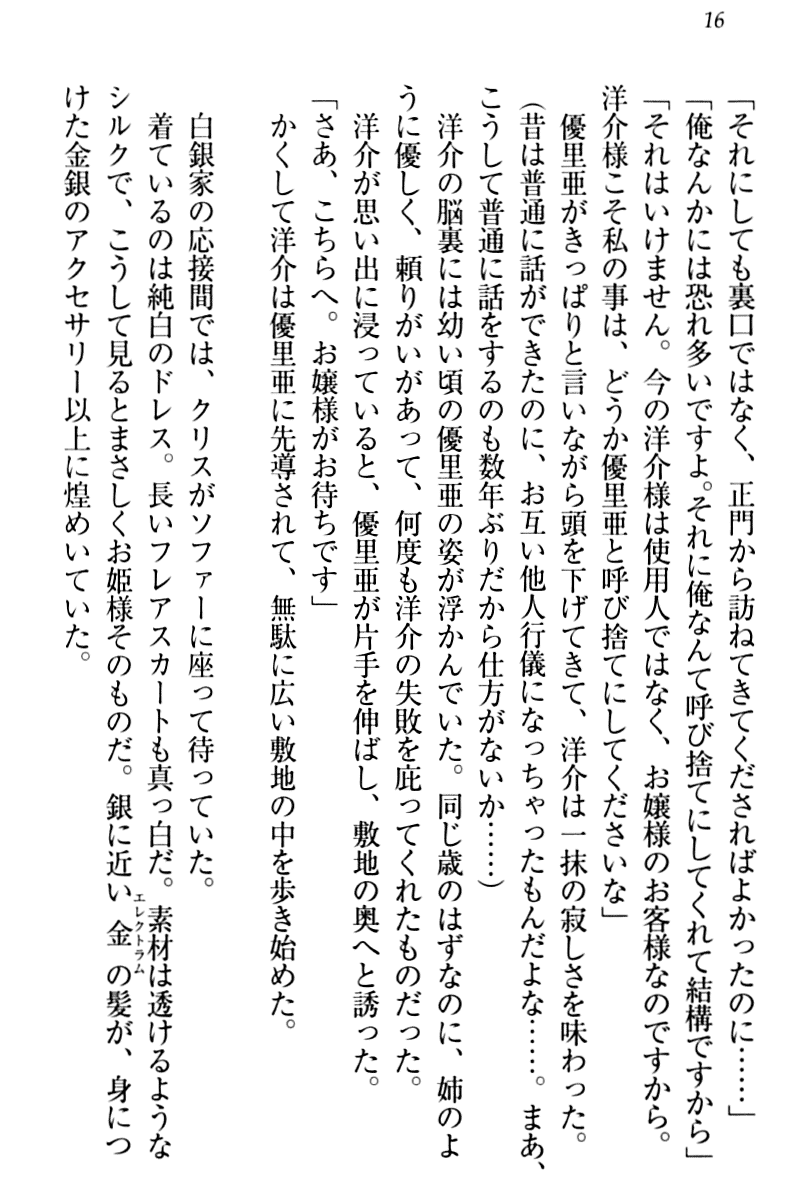 16
「それにしても裏口ではなく、正門から訪ねてきてくださればよかったのに……」
「俺なんかには恐れ多いですよ。それに俺なんて呼び捨てにしてくれて結構ですから」
「それはいけません。今の洋介様は使用人ではなく、お嬢様のお客様なのですから。
洋介様こそ私の事は、どうか優里亜と呼び捨てにしてくださいな」
優里亜がきっぱりと言いながら頭を下げてきて、洋介は一抹の寂しさを味わった。
(昔は普通に話ができたのに、お互い他人行儀になっちゃったもんだよな……。まあ、
こうして普通に話をするのも数年ぶりだから仕方がないか……)
洋介の脳裏には幼い頃の優里亜の姿が浮かんでいた。同じ歳のはずなのに、姉のよ
うに優しく、頼りがいがあって、何度も洋介の失敗を庇ってくれたものだった。
洋介が思い出に浸っていると、優里亜が片手を伸ばし、敷地の奥へと誘った。
「さあ、こちらへ。お嬢様がお待ちです」
かくして洋介は優里亜に先導されて、無駄に広い敷地の中を歩き始めた。
白銀家の応接間では、クリスがソファーに座って待っていた。
着ているのは純白のドレス。長いフレアスカートも真っ白だ。素材は透けるような
シルクで、こうして見るとまさしくお姫様そのものだ。銀に近い金の髪が、身につ
エレクトラム
けた金銀のアクセサリー以上に煌めいていた。